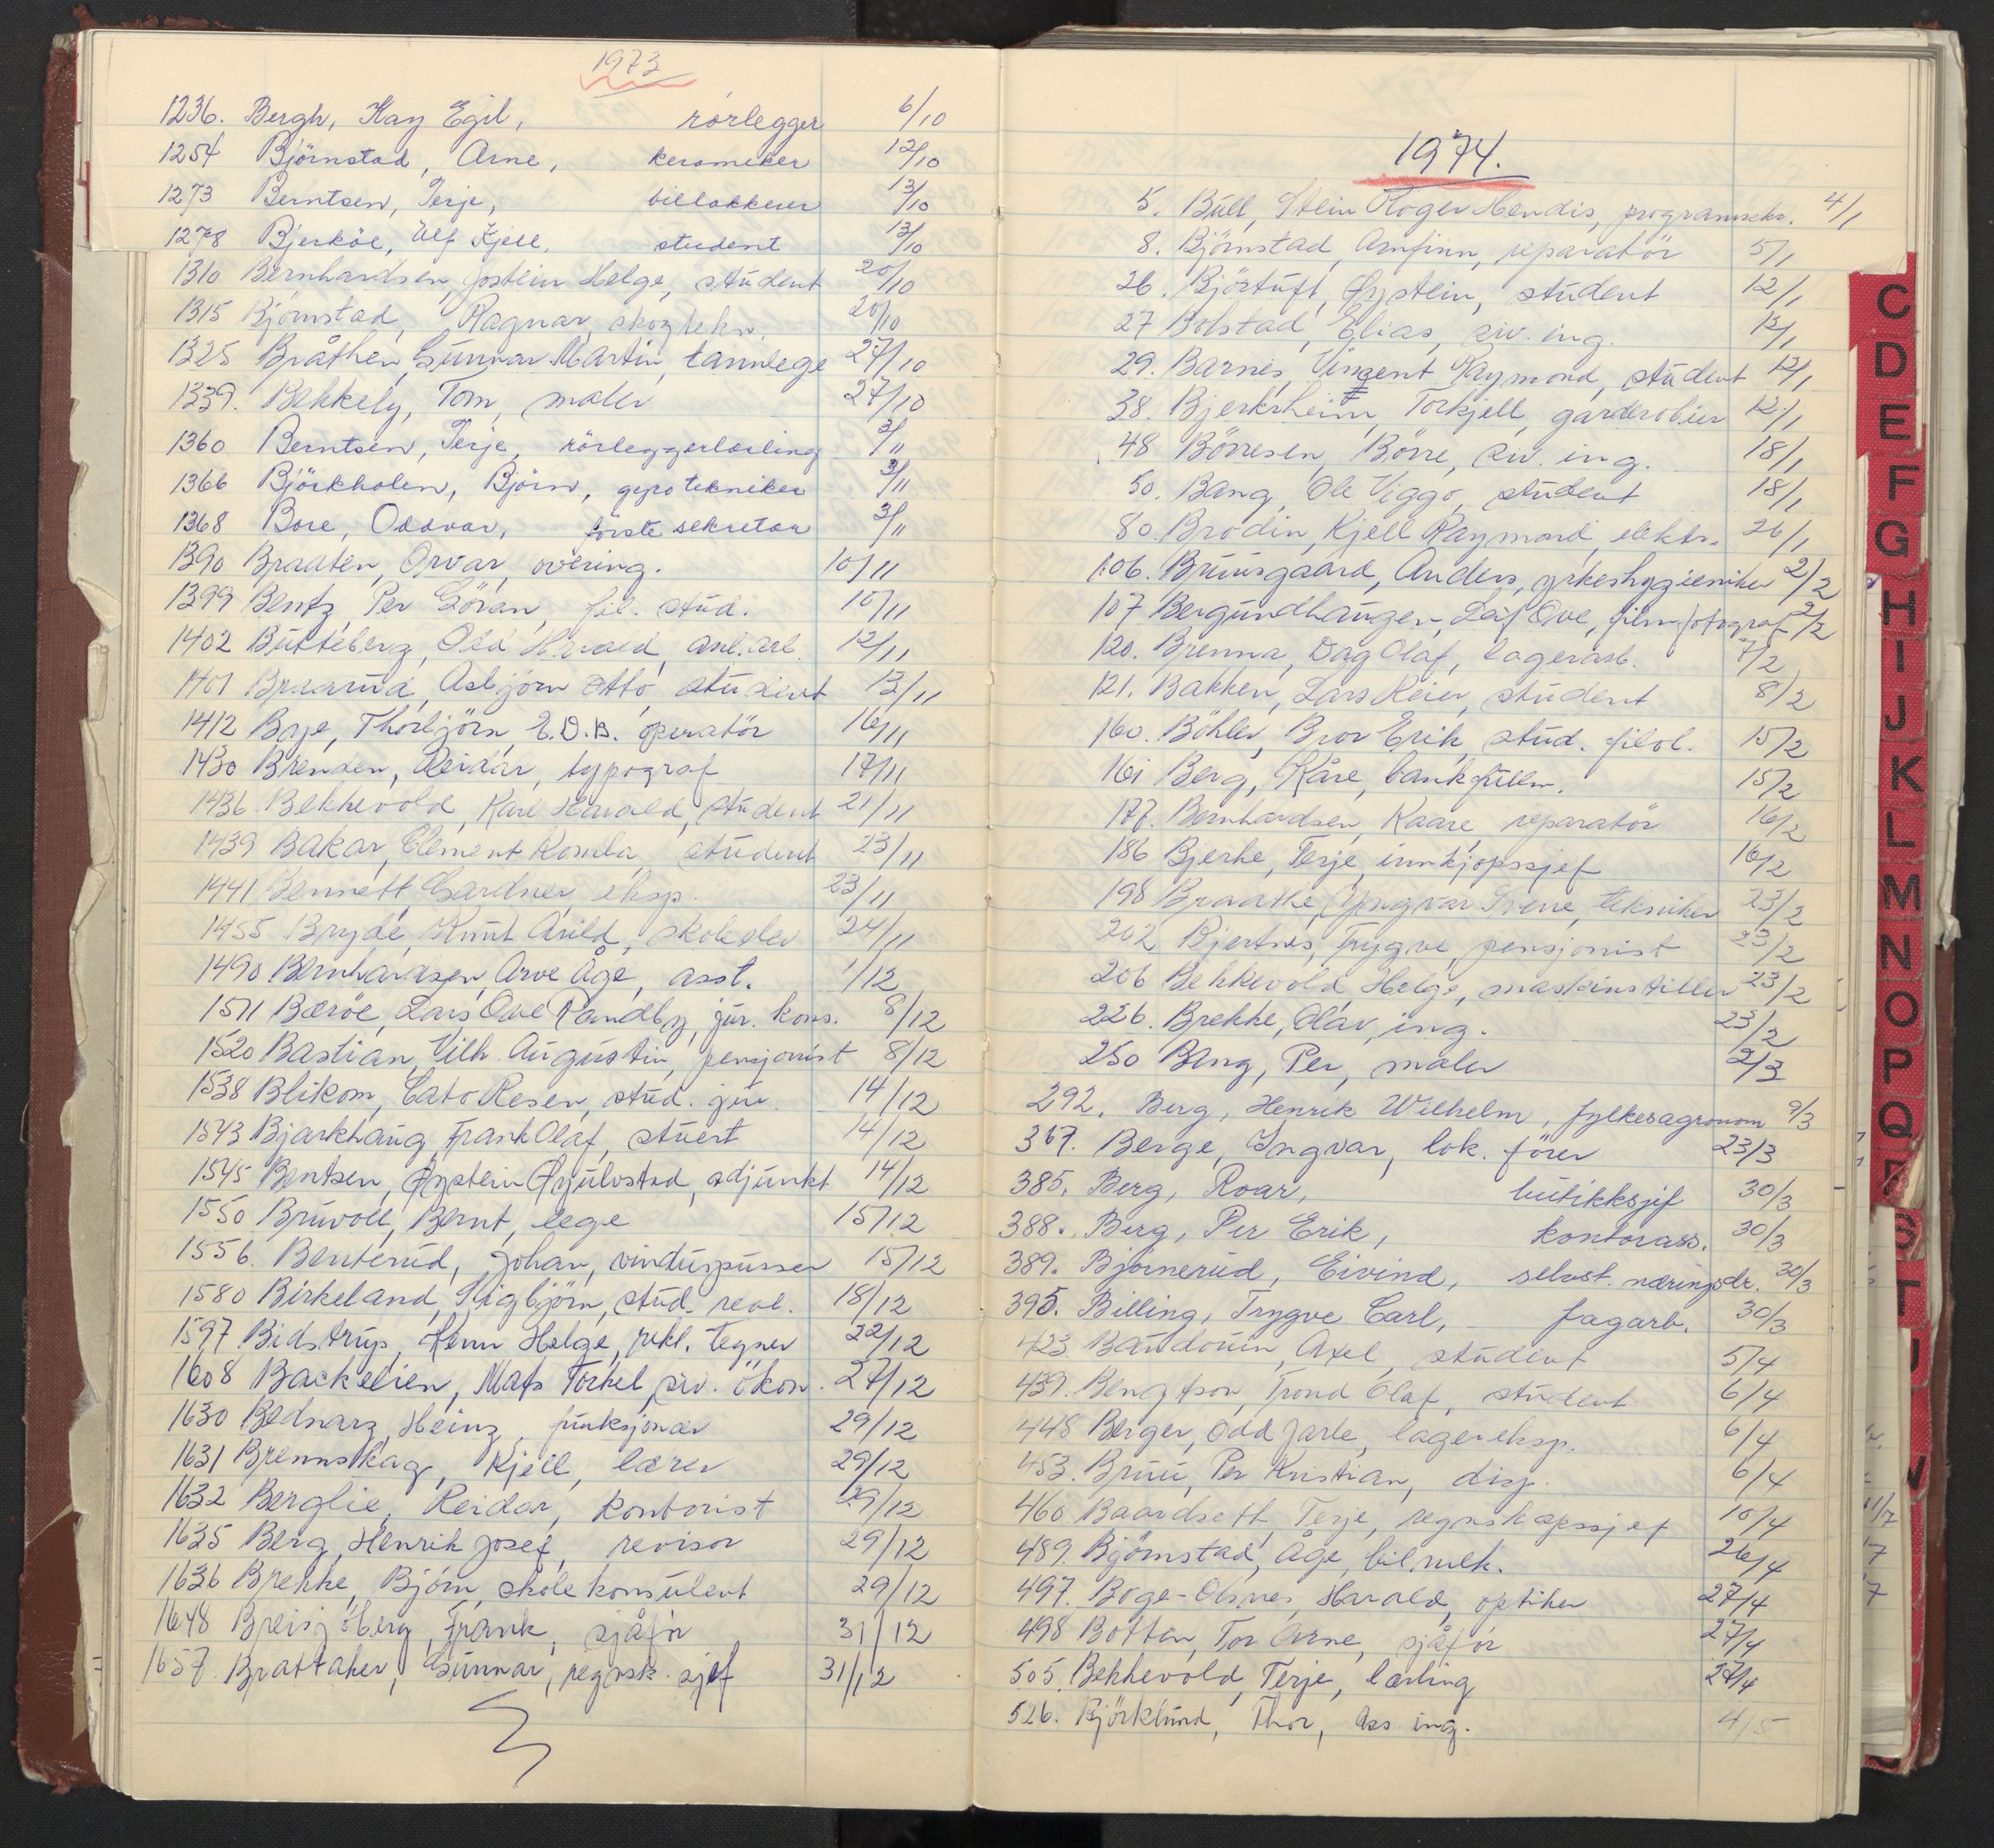 1973
1236. Bergh, Kay Egil, rörlegger 6/10
1254 Björnstad, Arne, keramiker 12/10
1273 Berntsen, Terje, billakkerer 13/10
1278 Bjerköe, Ulf Kjell, student 13/10
1310 Bernhardsen, Jostein Helge, student 20/10
1315 Björnstad, Ragnar, skogtekn. 20/10
1325 Bråthen, Gunnar Martin, tannlege 27/10
1339. Bekkely, Tom, maler 27/10
1360 Berntsen, Terje, rörleggerlærling 3/11
1366 Björkholen, Björn, gyrotekniker 3/11
1368 Bore, Oddvar, förstesekretær 3/11
1390 Braaten, Orvar, overing. 10/11
1399 Bentz, Per Göran, fil. stud. 10/11
1402 Butteberg, Odd Harald, anl. arb. 12/11
1407 Braarud, Asbjörn Otto student 13/11
1412 Bye, Thorbjörn E.D.B. operatör 16/11
1430 Brenden, Reidar, typograf 17/11
1436. Bekkevold, Kåre Harald, student 21/11
1439 Bakar, Clement Komla, student 23/11
1441 Bennett Gardner eksp. 23/11
1455 Bryde, Knut Arild, skoleelev 24/11
1490 Bernhardsen, Arve Åge, asst. 1/12
1511 Bæröe, Lars Ove Randby, jur. kons. 8/12
1520 Bastian, Vilh. Augustin, pensjonist 8/12
1538 Blikom, Cato Resen, stud. jur. 14/12
1543 Bjarkhaug, Frank Olaf, stuert 14/12
1545 Bentsen, Øystein Gjulvstad, adjunkt 14/12
1550 Bruvoll, Bernt, lege 15/12
1556. Benterud, Johan, vinduspusser 15/12
1580 Birkeland, Sigbjörn, stud. real. 18/12
1597 Bidstrup, Kenn Helge, rekl. tegner 22/12
1608 Backelien, Mats Torkel, siv. ökon. 27/12
1630 Bednarz, Heinz, funksjonær 29/12
1631 Brennskag, Kjell, lærer 29/12
1632 Berglie, Reidar, kontorist 29/12
1635 Berg, Henrik Josef, revisor 29/12
1636 Brekke, Björn, skolekonsulent 29/12
1648 Breisjöberg, Frank, sjåför 31/12
1657. Brattaker, Gunnar, regnsk. sjef 31/12
1974.
5. Bull, Stein Roger Hendis, programsekr. 4/1
8. Björnstad, Arnfinn, reparatör 5/1
26. Björtuft, Øystein, student 12/1
27 Bolstad, Elias, siv. ing. 12/1
29. Barnes, Vincent Raymond, student 12/1
38. Bjerkrheim, Torkjell, garderobier 12/1
48 Börresen, Börre, siv. ing. 18/1
50. Bang, Ole Viggo, student 18/1
80. Brodin, Kjell Raymond, elektr. 26/1
106. Bruusgaard, Anders, yrkeshygieniker 2/2
107 Bergundhaugen, Leif Ove, filmfotograf 2/2
120. Brenna, Dag Olaf, lagerarb. 7/2
121. Bakken, Lars Reier, student 8/2
160. Böhler, Bror Erik, stud. filol. 15/2
161 Berg, Kåre, bankfullm. 15/2
177. Bernhardsen, Kaare, reparatör 16/2
186 Bjerke, Terje, innkjöpssjef 16/2
198 Braathe, Yngvar Sverre, tekniker 23/2
202 Bjertnes, Trygve, pensjonist 23/2
206 Bekkevold Helge, maskinstiller 23/2
226. Brekke, Olav, ing. 23/2
250 Berg, Per, maler 2/3
292. Berg, Henrik Wilhelm, fylkesagronom 9/3
367. Berge, Yngvar, lok. förer 23/3
385. Berg, Roar, butikksjef 30/3
388. Berg, Per Erik, kontorass. 30/3
389. Bjørnerud, Eivind, selvst. næringsdr. 30/3
395. Billing, Trygve Carl, fagarb. 30/3
423. Baudouin, Axel, student 5/4
439. Bengtson, Trond Olaf, student 6/4
448 Berger, Odd Jarle, lagereksp. 6/4
453. Bruu, Per Kristian, disp. 6/4
460 Baardseth, Terje, regnskapssjef 10/4
489. Björnstad, Åge, bilmek. 26/4
497. Boge-Olsnes, Harald, optiker 27/4
498 Botten, Tor Arne, sjåför 27/4
505. Bekkevold, Terje, lærling 27/4
526. Björklund, Thor, Ass ing. 4/5
C
D
E
F
G
H
I
J
K
L
M
N
O
P
Q
R
S
T